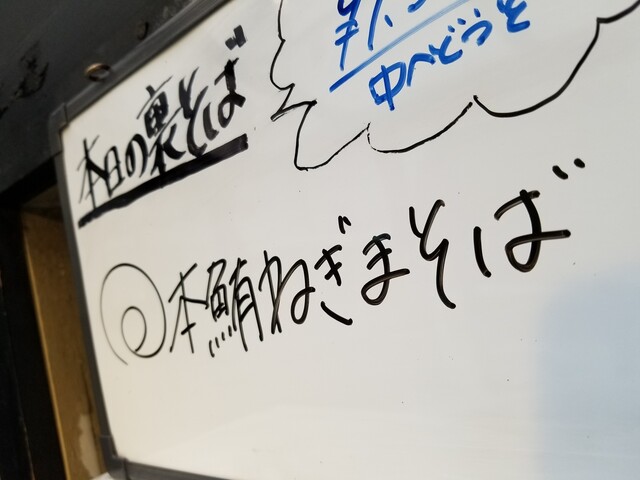 本日の裏そば
中へどうぞ
本鮪ねぎまそば